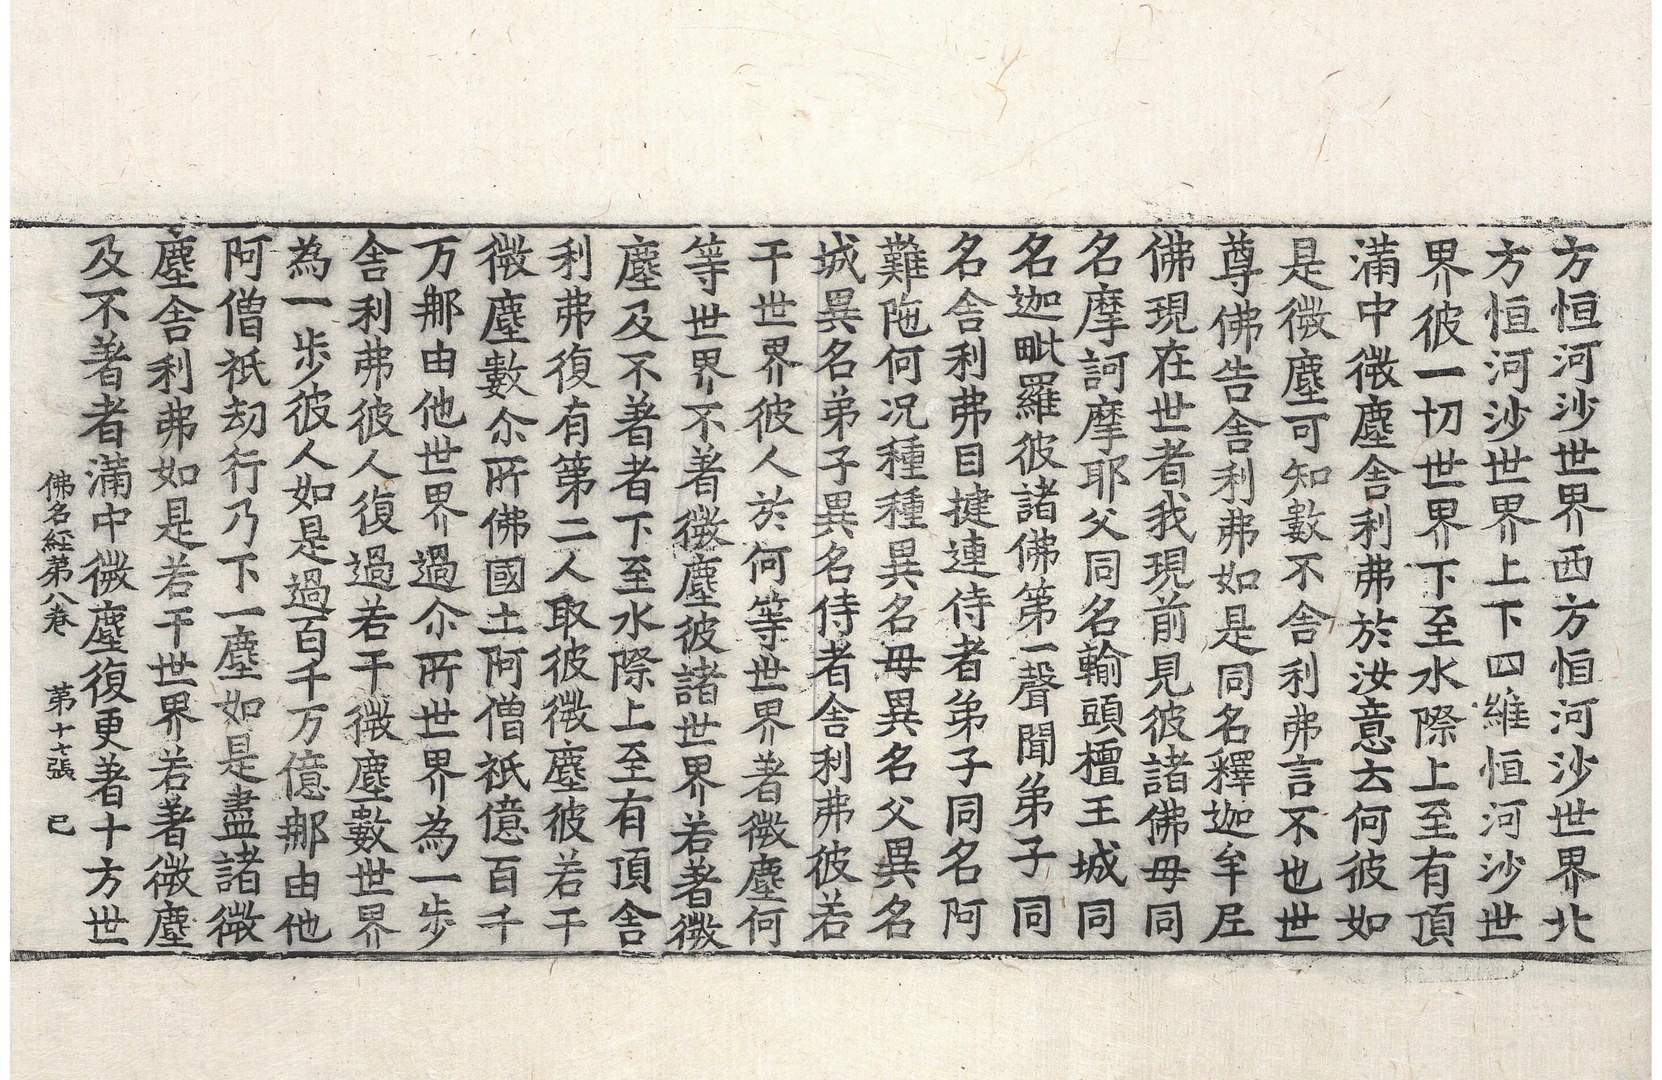 方恒河沙世界西方恒河沙世界北
方恒河沙世界上下四維恒河沙世
界彼一切世界下至水際上至有頂
滿中微塵舍利弗於汝意云何彼如
是微塵可知數不舍利弗言不也世
尊佛告舍利弗如是同名釋迦牟尼
佛現在世者我現前見彼諸佛母同
名摩訶摩耶父同名輸頭檀王城同
名迦毗羅彼諸佛第一聲聞弟子同
名舍利弗目揵連侍者弟子同名阿
難陁何况種種異名母異名父異名
城異名弟子異名侍者舍利弗彼若
干世界彼人於何等世界著微塵何
等世界不著微塵彼諸世界若著微
塵及不著者下至水際上至有頂舍
利弗復有第二人取彼微塵彼若干
微塵數尒所佛國土阿僧祇億百千
万那由他世界過尒所世界為一步
舍利弗彼人復過若干微塵數世界
為一步彼人如是過百千万億那由他
阿僧祇劫行乃下一塵如是盡諸微
塵舍利弗如是若干世界若著微塵
及不著者滿中微塵復更著十方世
佛名経第八卷 第十七張 已